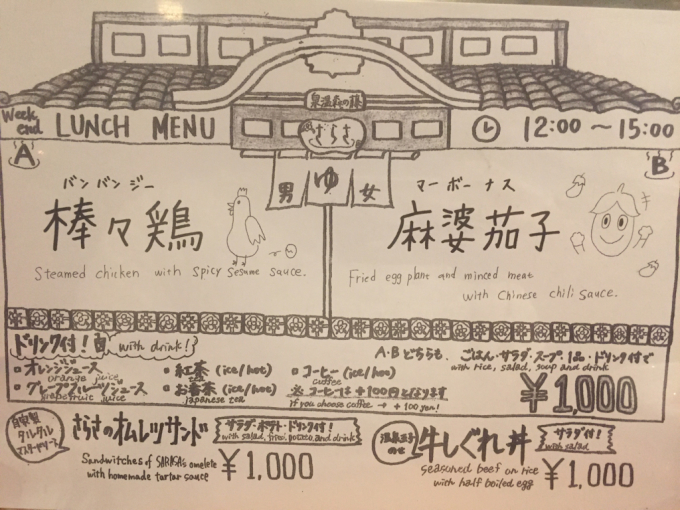 さらさ
Week end LUNCH MENU 12:00〜15:00
男 ゆ 女
A
バンバンジー
棒々鶏
Steamed chicken with spicy sesame sauce.
B
マーボーナス
麻婆茄子
Fried egg plane and minced meat
with chinese chili sauce.
ドリンク付! with drink!
・オレンジジュース
orange juice
・グレープフルーツジュース
grapefruit juice
・紅茶 (ice/hot)
・お番茶 (ice/hot)
japanese tea
・コーヒー (ice/hot)
coffee
※コーヒーは+100円となります
if you choose coffee → +100 yen!
A・Bどちらも、ごはん・サラダ・スープ・1品・ドリンク付で
with rice, salad, soup and drink
¥1,000
自家製タルタルマスタードソース
さらさのオムレツサンド
サラダ・ポテト・ドリンク付!
with salad, fried potato, and drink
Sandwitches of SARASA's omelete
with homemade tartar sauce
¥1,000
温泉玉子のせ
牛しぐれ丼
サラダ付!
with salad
seasoned beef on rice
with half boiled egg
¥1,000